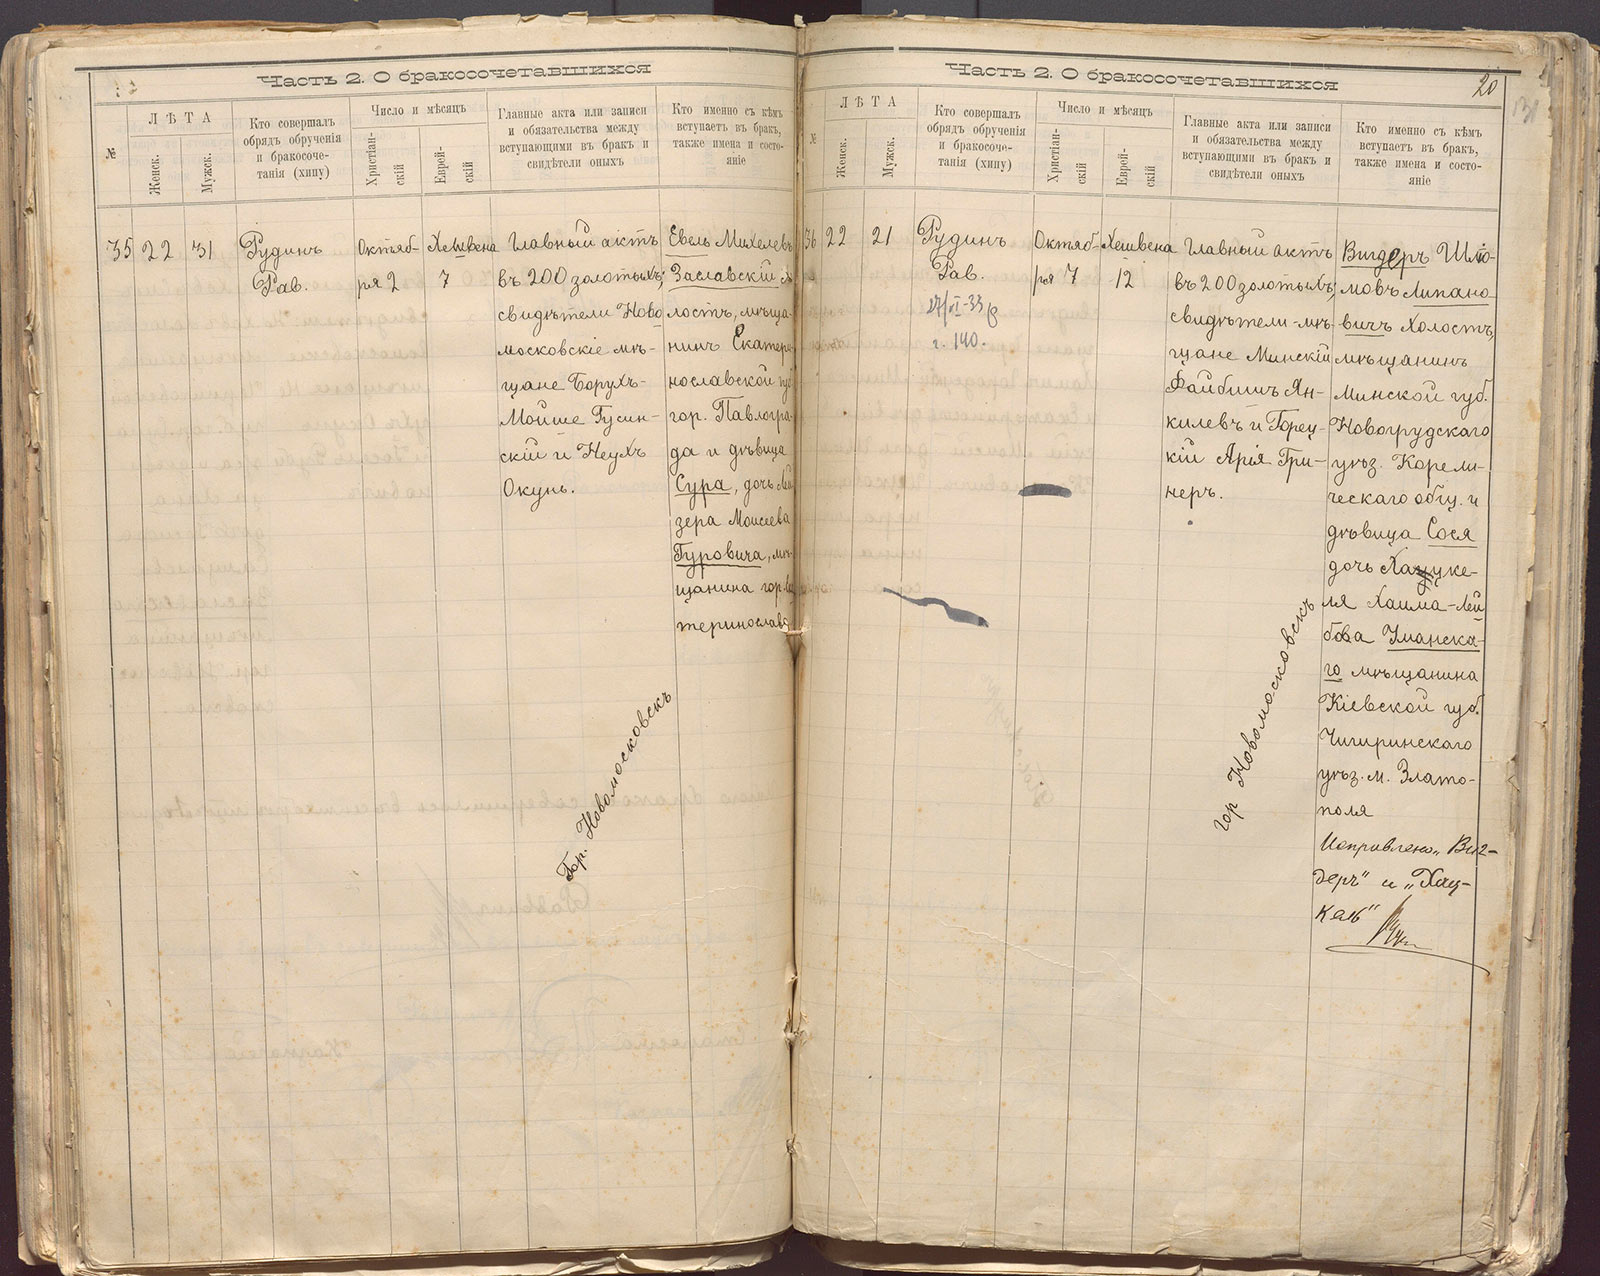 Часть 2. О бракосочетавшихся
№
ЛѢТА
Женск.
Мужск.
Кто совершалъ
обрядъ обрученія
и бракосоче-
танія (хипу)
Число и мѣсяцъ
Христіан-
скій
Еврей-
скій
Главные акта или записи
и обязательства между
вступающими въ бракъ и
свидѣтели оныхъ
Кто именно съ кѣмъ
вступаетъ въ бракъ,
также имена и состо-
яніе
35
22
31
Рудинъ
Рав.
Октяб-
ря 2
Хешвена
7
Главный актъ
въ 200 золотыхъ;
свидѣтели Ново
московскіе мѣ-
щане Борухъ-
Мойше Гусин-
скій и Неухъ
Окунь.
Евель Михелевъ
Заславскій, хо
лостъ, мѣща-
нинъ Екатери-
нославской губ
гор. Павлогра-
да и дѣвица
Сура, дочь Лей
зера Моисеева
Гуровича, мѣ-
щанина гор. Ека
теринослава
Гор. Новомосковскъ
Часть 2. О бракосочетавшихся
20
№
ЛѢТА
Женск.
Мужск.
Кто совершалъ
обрядъ обрученія
и бракосоче-
танія (хипу)
Число и мѣсяцъ
Христіан-
скій
Еврей-
скій
Главные акта или записи
и обязательства между
вступающими въ бракъ и
свидѣтели оныхъ
Кто именно съ кѣмъ
вступаетъ въ бракъ,
также имена и состо-
яніе
36
22
21
Рудинъ
Рав.
27/VI-33
г. 140.
Октяб-
ря 7
Хешвена
12
Главный актъ
въ 200 золотыхъ;
свидѣтели-мѣ-
щане Минскій
Файбишъ Ян-
килевъ и Горец-
кій Арія Гри-
неръ.
Вигдеръ Шлю-
мовъ Липано-
вичъ Холостъ,
мѣщанинъ
Минской губ.
Новогрудскаго
уѣз. Корели-
ческаго общ. и
дѣвица Сося
дочь Хацке-
ля Хаима-Лей
бова Уманска-
го мѣщанина
Кіевской губ.
Чигиринскаго
уѣз. м. Злато-
поля
Исправлено "Виг-
деръ" и "Хац-
кель"
гор Новомосковскъ